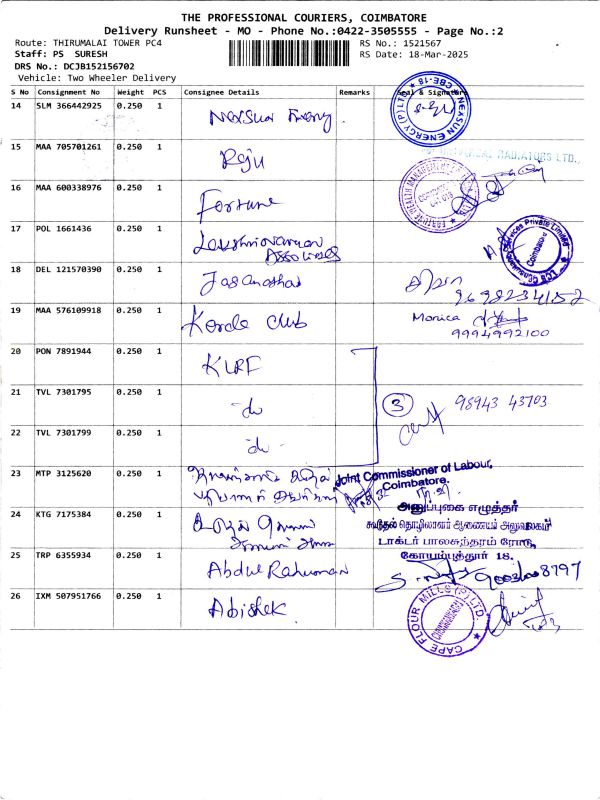 THE PROFESSIONAL COURIERS, COIMBATORE
Delivery Runsheet - MO - Phone No.:0422-3505555 - Page No.:2
Route: THIRUMALAI TOWER PC4
RS No.: 1521567
Staff: PS SURESH
RS Date: 18-Mar-2025
DRS No.: DCJB152156702
Vehicle: Two Wheeler Delivery
S No Consignment No Weight PCS Consignee Details Remarks Seal & Signature
14 SLM 366442925 0.250 1 NEXSUN ENERGY (P) LTD CBE-18
15 MAA 705701261 0.250 1 Raju RADIATORS LTD.,
16 MAA 600338976 0.250 1 Fortune
17 POL 1661436 0.250 1 Lakshminarayanan Associates Services Private Limited Coimbatore
18 DEL 121570390 0.250 1 Jaganathan
9698234152
19 MAA 576109918 0.250 1 Club Monica
9994992100
20 PON 7891944 0.250 1 KLRF
21 TVL 7301795 0.250 1 -do 3 98943 43703
22 TVL 7301799 0.250 1 -do-
23 MTP 3125620 0.250 1 Joint Commissioner of Labour,
Coimbatore.
24 KTG 7175384 0.250 1 அனுப்புகை எழுத்தர்
கூடுதல் தொழிலாளர் ஆணையம் அலுவலகம்
டாக்டர் பாலசுந்தரம் ரோடு,
25 TRP 6355934 0.250 1 Abdul Rahuman கோயம்புத்தூர் 18.
26 IXM 507951766 0.250 1 Abishek CAPE FLOUR MILLS (P) LTD.